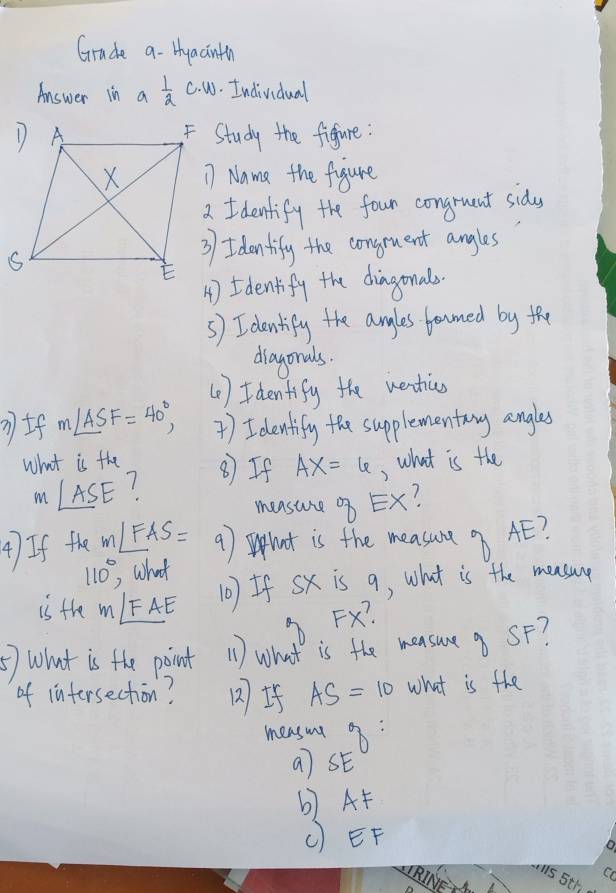 Grade 9- Hyacinth
Answer in a 1/2 C.W. Individual
1)
A
F
X
S
E
Study the figure:
1) Name the figure
2 Identify the four congruent sides
3) Identify the congruent angles
4) Identify the diagonals.
5) Identify the angles formed by the
diagonals.
6) Identify the vertices
7) Identify the supplementary angles
8) If AX = 6, what is the
measure of EX?
9) What is the measure of AE?
10) If SX is 9, what is the measure
of FX?
11) What is the measure of SF?
12) If AS = 10 what is the
measure of:
a) SE
b) AF
c) EF
3) If m∠ASF = 40°,
what is the
m∠ASE?
14) If the m∠FAS =
110°, what
is the m∠FAE
5) What is the point
of intersection?
TRINE
his 5th